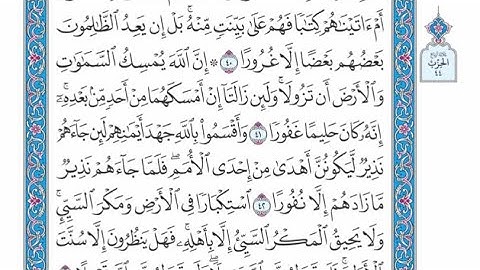 أَمْ ءَاتَيْنَٰهُمْ كِتَٰبًا فَهُمْ عَلَىٰ بَيِّنَتٍ مِّنْهُ ۚ بَلْ إِن يَعِدُ ٱلظَّٰلِمُونَ
بَعْضُهُم بَعْضًا إِلَّا غُرُورًا ٤٠ ۞ إِنَّ ٱللَّهَ يُمْسِكُ ٱلسَّمَٰوَٰتِ
وَٱلْأَرْضَ أَن تَزُولَا ۚ وَلَئِن زَالَتَآ إِنْ أَمْسَكَهُمَا مِنْ أَحَدٍ مِّنۢ بَعْدِهِۦٓ ۚ
إِنَّهُۥ كَانَ حَلِيمًا غَفُورًا ٤١ وَأَقْسَمُوا۟ بِٱللَّهِ جَهْدَ أَيْمَٰنِهِمْ لَئِن جَآءَهُمْ
نَذِيرٌ لَّيَكُونُنَّ أَهْدَىٰ مِنْ إِحْدَى ٱلْأُمَمِ ۖ فَلَمَّا جَآءَهُمْ نَذِيرٌ
مَّا زَادَهُمْ إِلَّا نُفُورًا ٤٢ ٱسْتِكْبَارًا فِى ٱلْأَرْضِ وَمَكْرَ ٱلسَّيِّئِ ۚ
وَلَا يَحِيقُ ٱلْمَكْرُ ٱلسَّيِّئُ إِلَّا بِأَهْلِهِۦ ۚ فَهَلْ يَنظُرُونَ إِلَّا سُنَّتَ
الحزب
٤٤